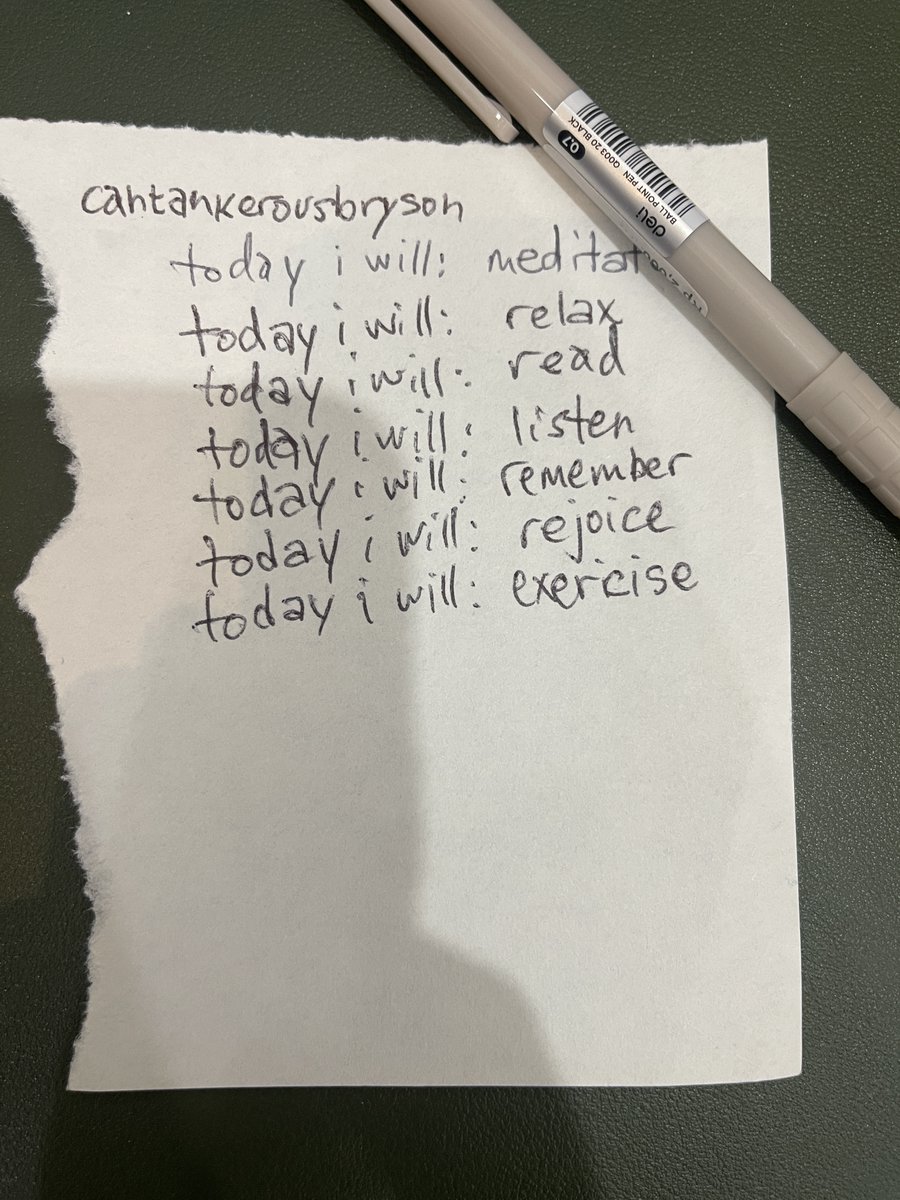 cantankerousbryson
today i will: meditat
today i will: relax
today i will: read
today i will: listen
today i will: remember
today i will: rejoice
today i will: exercise
deli
BALL POINT PEN Q003 20 BLACK
0.7